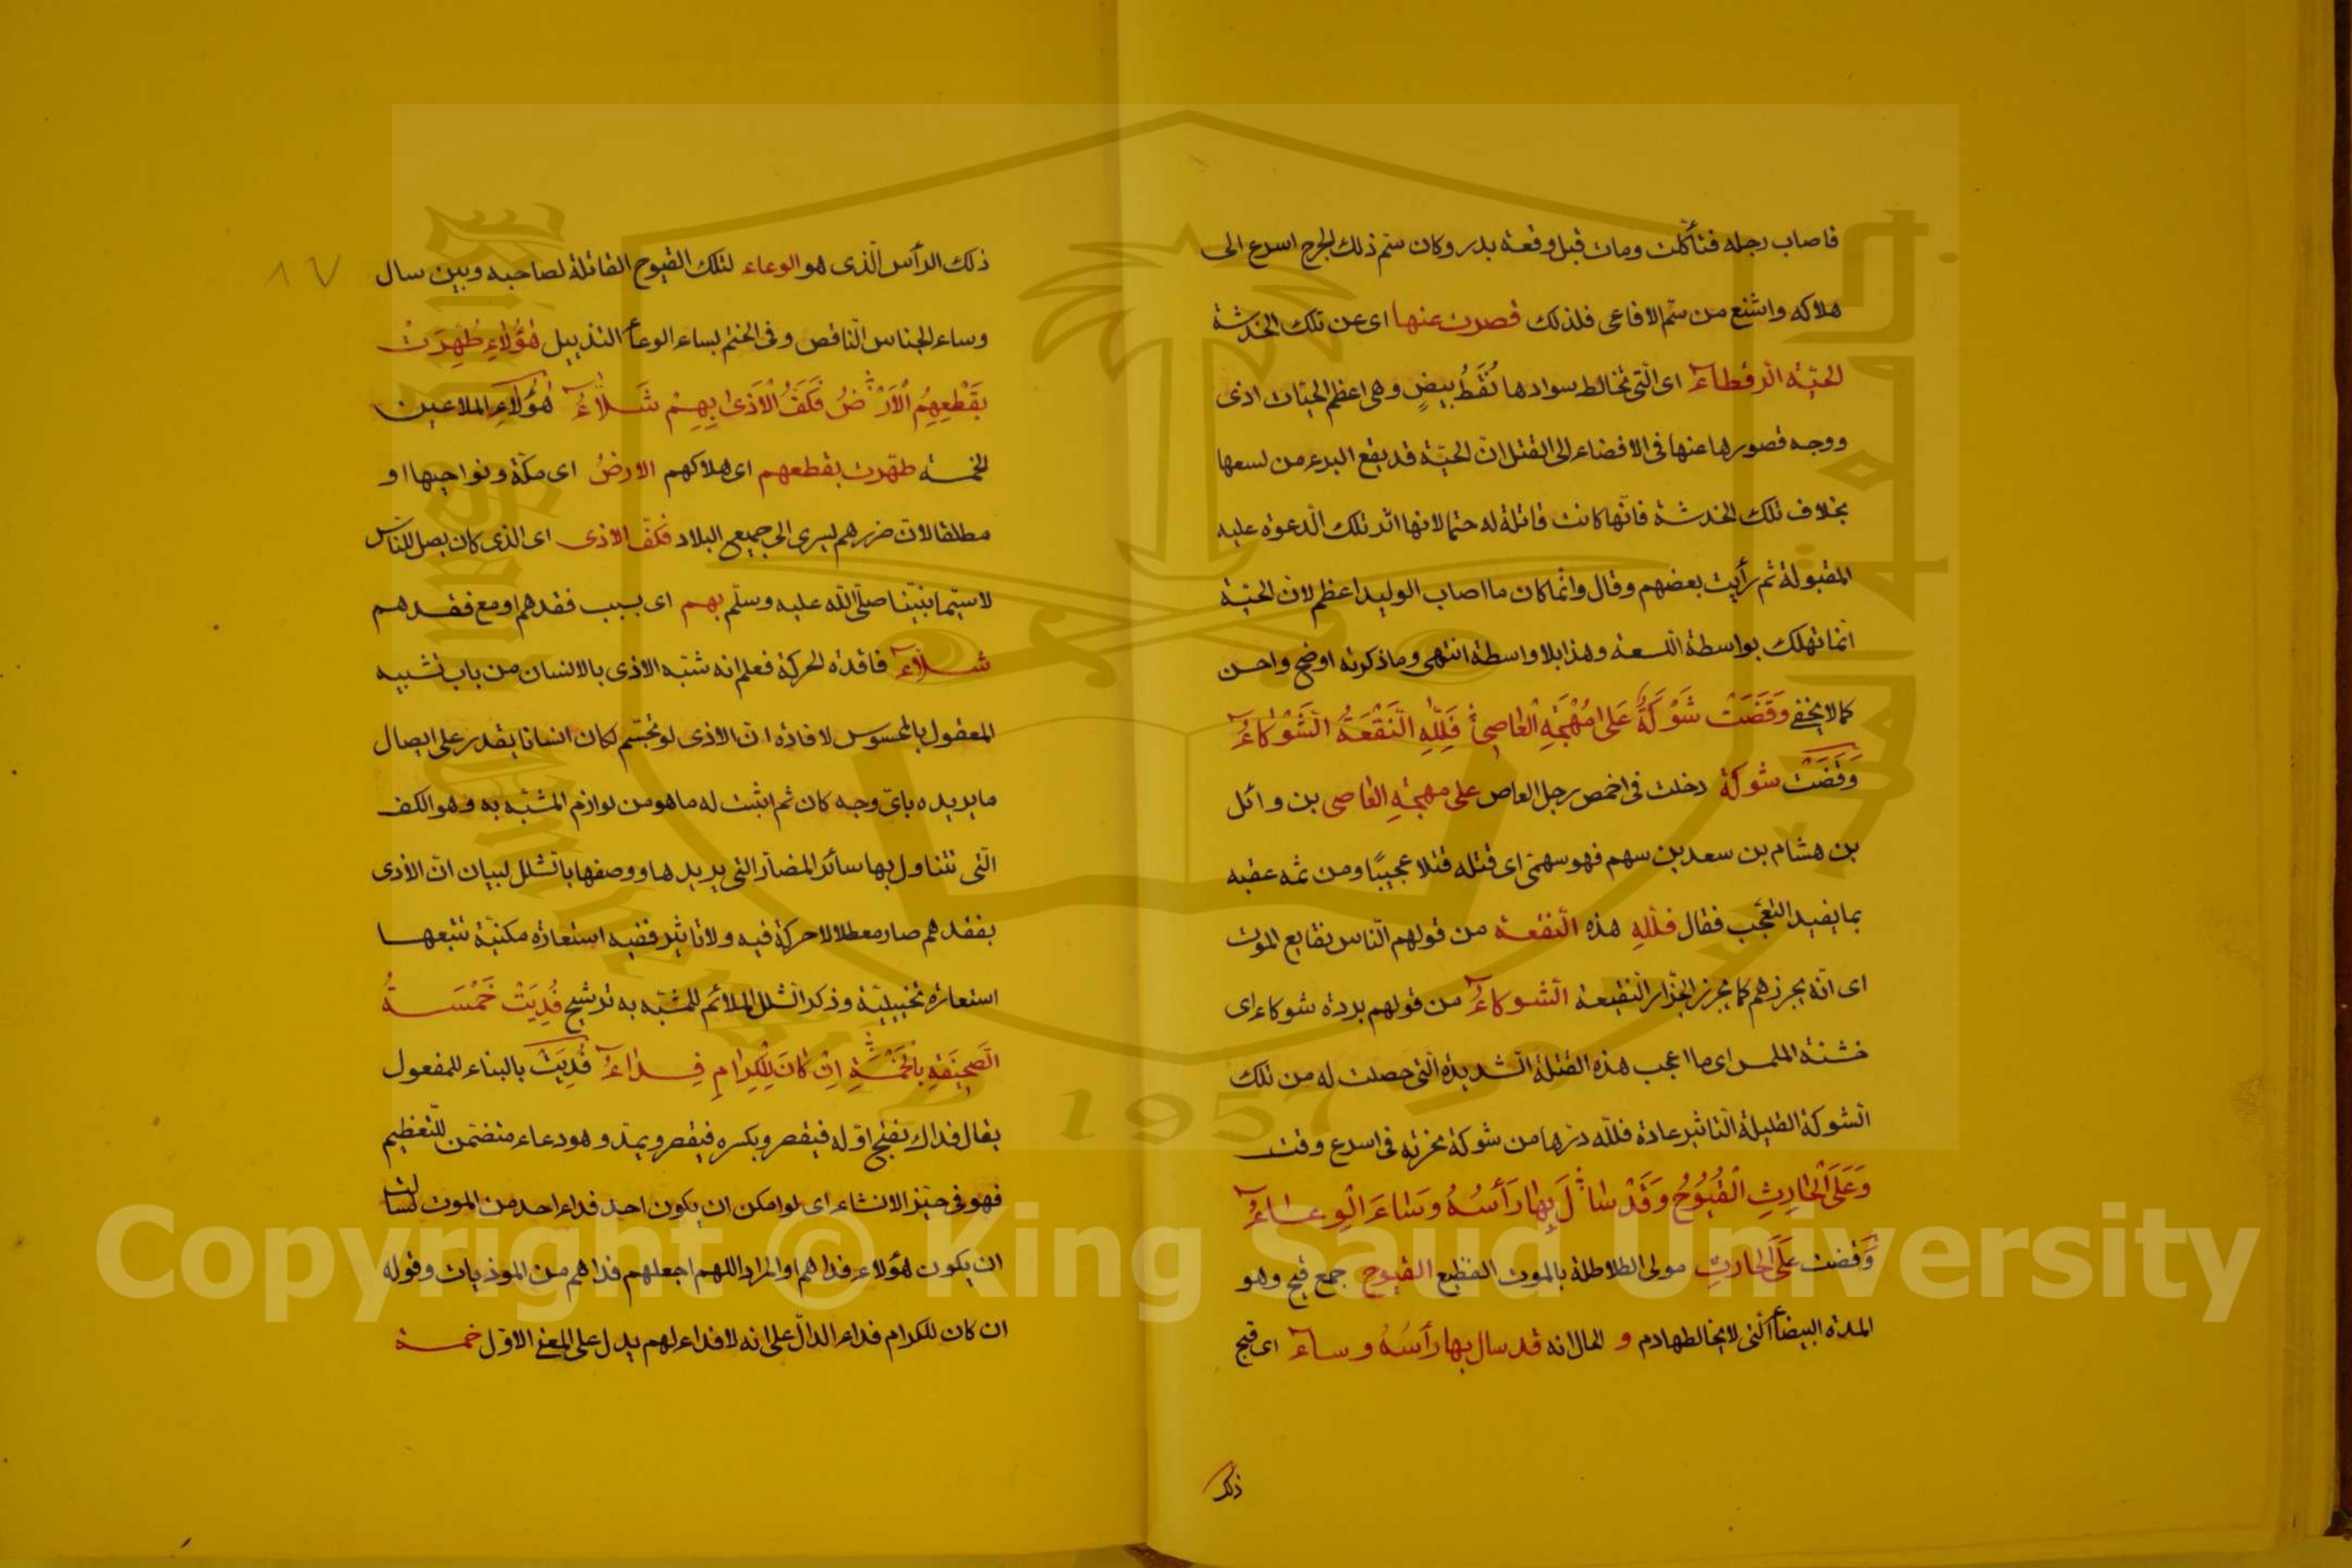 فاصاب رجله فتأكلت ومات قبل وقعة بدر وكان سم ذلك الجرح اسرع الى
هلاكه واشنع من سم الافاعى فلذلك قصرت عنها اى عن تلك الخدشة
الحيّة الرقطاء اى الّتى تخالط سوادها نُقَطُ بيضٍ وهى اعظم الحيّات اذى
ووجه قصورها عنها فى الافضاء الى القتل انّ الحيّة قد يقع البرء من لسعها
بخلاف تلك الخدشة فانّها كانت قاتلة له حتما لانها اثر تلك الدعوة عليه
المقبولة ثم رأيت بعضهم وقال وانّما كان ما اصاب الوليد اعظم لان الحيّة
انّما تهلك بواسطة اللسعة وهذا بلا واسطة انتهى وما ذكرته اوضح واحسن
كما لا يخفى وَقَضَتْ شَوْكَةٌ عَلىٰ مُهْجَةِ الْعاصِىْ فَلِلّٰهِ النَّقْعَةُ الشَّوْكاءُ
وَقَضَتْ شوكة دخلت فى اخمص رجل العاص على مهجةِ العاصى بن وائل
بن هشام بن سعد بن سهم فهو سهمّى اى قتله قتلا عجيبًا ومن ثمه عقبه
بما يفيد التعجّب فقال فللهِ هذه النقعة من قولهم النّاس نقايع الموت
اى انّه يجرزهم كما يجرز الجزّار النقيعة الشوكاءُ من قولهم بردة شوكاء اى
خشنة الملمس اى ما اعجب هذه القتلة الشديدة الّتى حصلت له من تلك
الشوكة القليلة التاثير عادة فللّه درّها من شوكة نخرته فى اسرع وقت
وَعَلَى الْحارِثِ الْقُيُوحُ وَقَدْ سٰالَ بِهٰا رَأسُهُ وَسٰاءَ الْوِعٰاءُ
وَقضت عَلَى الحارثِ مولى الطلاطلة بالموت الفظيع القيوح جمع قيح وهو
المدة البيضاء الّتى لا يخالطها دم و الحال انه قد سال بها رأسُهُ وساء اى قبح
ذلك
ذلك الرأس الّذى هو الوعاء لتلك القيوح القاتلة لصاحبه وبين سال
وساء الجناس النّاقص وفى الختم بساء الوعاء التذييل هٰؤُلاءِ طُهِّرَتْ
بِقَطْعِهِمُ الْاَرْضُ فَكَفُّ الْاَذىٰ بِهِمْ شَلّاءُ هٰؤُلاءِ الملاعين
الخمسة طهّرت بقطعهم اى هلاكهم الارضُ اى مكّة ونواحيها او
مطلقا لانّ ضررهم يسرى الى جميع البلاد فكفّ الاذى اى الذى كان يصل للنّاس
لاسيّما نبيّنا صلّى اللّه عليه وسلّم بهم اى بسبب فقدهم او مع فقدهم
شلّاء فاقدة الحركة فعلم انه شبّه الاذى بالانسان من باب تشبيه
المعقول بالمحسوس لافادة انّ الاذى لو تجسّم لكان انسانا يقدر على ايصال
ما يريده باىّ وجه كان ثم اثبت له ما هو من لوازم المشبّه به وهو الكف
الّتى تتناول بها سائر المضارّ التى يريدها ووصفها بالشلل لبيان انّ الاذى
بفقدهم صار معطلا لا حركة فيه ولا تاثير ففيه استعارة مكنيّة تتبعها
استعارة تخييليّة وذكر الشلل الملائم للمشبّه به ترشيح فُدِيَتْ خَمْسَةُ
الصَّحِيفَةِ بِالْخَمْسَةِ اِنْ كٰانَ لِلْكِرٰامِ فِدٰاءُ فُدِيَتْ بالبناء للمفعول
يقال فداك بفتح اوّله فيقصر وبكسره فيقصر ويمدّ وهو دعاء متضمّن للتعظيم
فهو فى حيّز الانشاء اى لو امكن ان يكون احد فداء احد من الموت لسالت
ان يكون هؤلاء فداهم او المراد اللهم اجعلهم فداهم من الموذيات وقوله
ان كان للكرام فداء الدالّ على انه لا فداء لهم يدل على المعنى الاوّل خمسة
١٧
جامعة الملك سعود
King Saud University
1957
Copyright © King Saud University